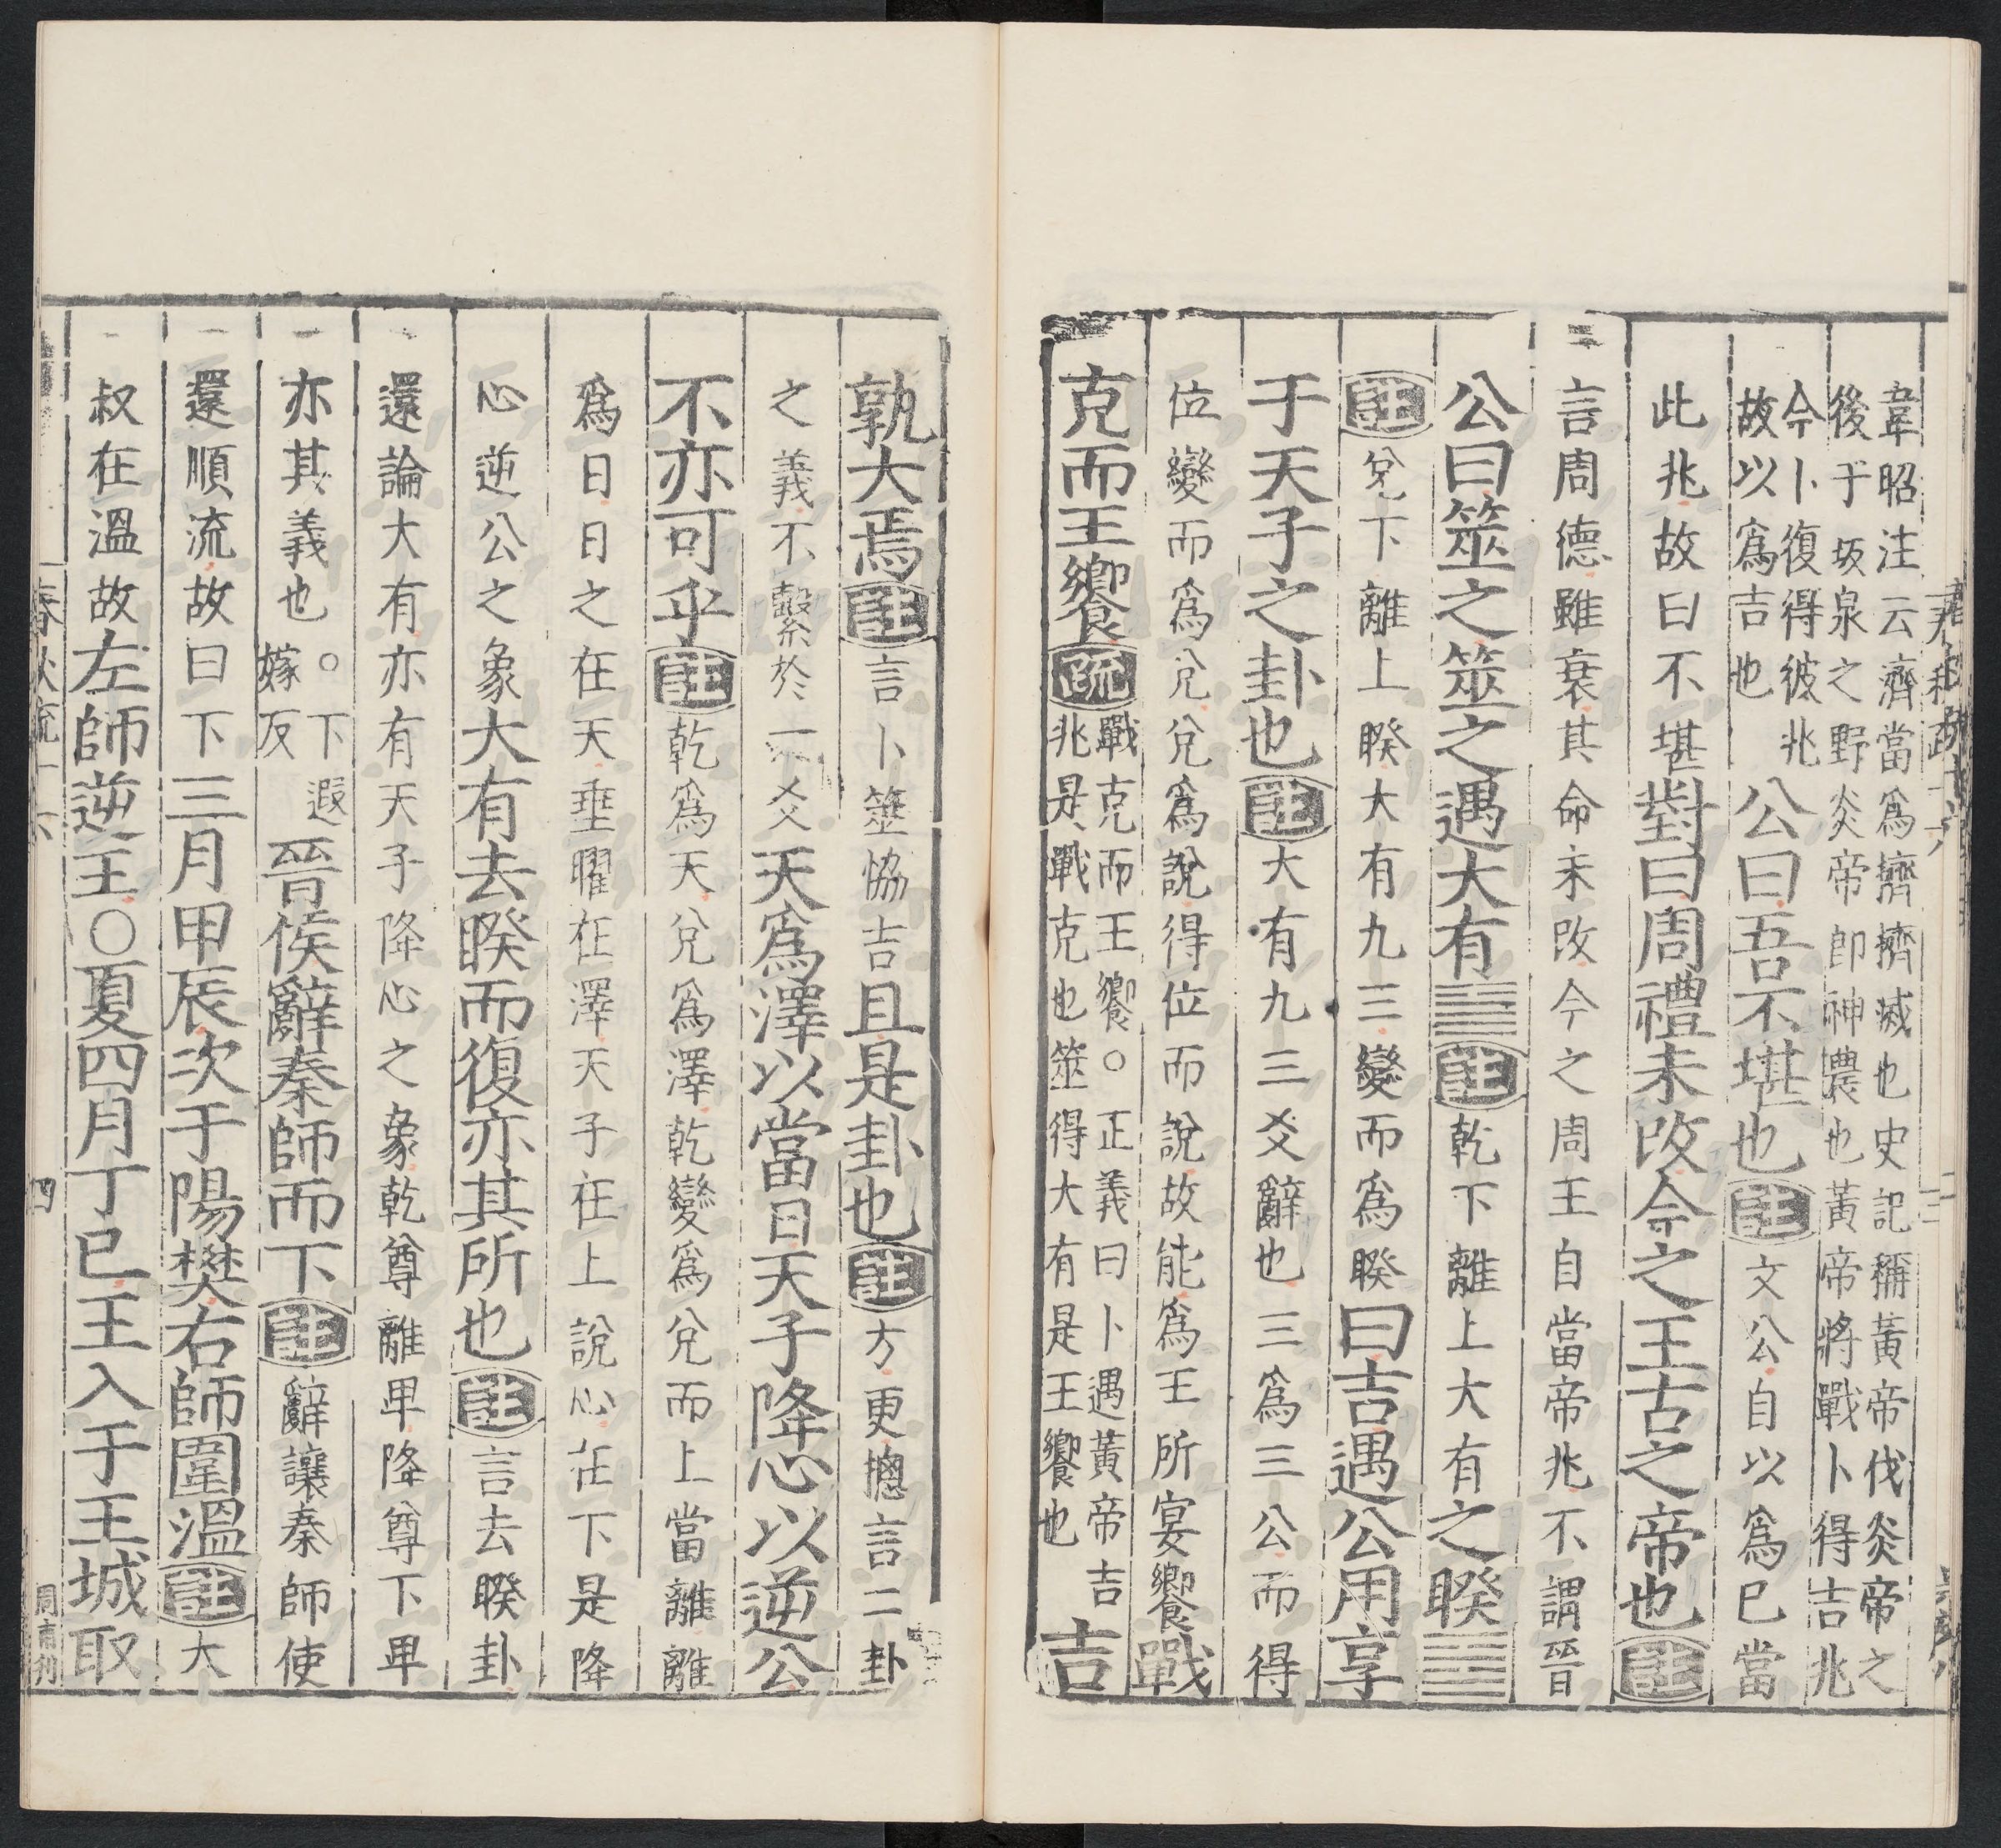 韋昭注云濟當爲擠擠滅也史記稱黃帝伐炎帝之
後于坂泉之野炎帝即神農也黃帝將戰卜得吉兆
今卜復得彼兆
故以爲吉也
公曰吾不堪也註文公自以爲已當
此兆故曰不堪對曰周禮未改今之王古之帝也註
言周德雖衰其命未改今之周王自當帝兆不謂晉
公曰筮之筮之遇大有䷍註乾下離上大有之睽䷥
註兌下離上睽大有九三變而爲睽曰吉遇公用享
于天子之卦也註大有九三爻辭也三爲三公而得
位變而爲兌兌爲說得位而說故能爲王所宴饗戰
克而王饗疏戰克而王饗○正義曰卜遇黃帝吉
兆是戰克也筮得大有是王饗也
吉
孰大焉註言卜筮協吉且是卦也註方更摠言二卦
之義不繫於一爻天爲澤以當日天子降心以逆公
不亦可乎註乾爲天兌爲澤乾變爲兌而上當離離
爲日日之在天垂曜在澤天子在上說心在下是降
心逆公之象大有去睽而復亦其所也註言去睽卦
還論大有亦有天子降心之象乾尊離卑降尊下卑
亦其義也○下遐
嫁反
晉侯辭秦師而下註辭讓秦師使
還順流故曰下三月甲辰次于陽樊右師圍溫註大
叔在溫故左師逆王○夏四月丁巳王入于王城取
春秋疏十六
四